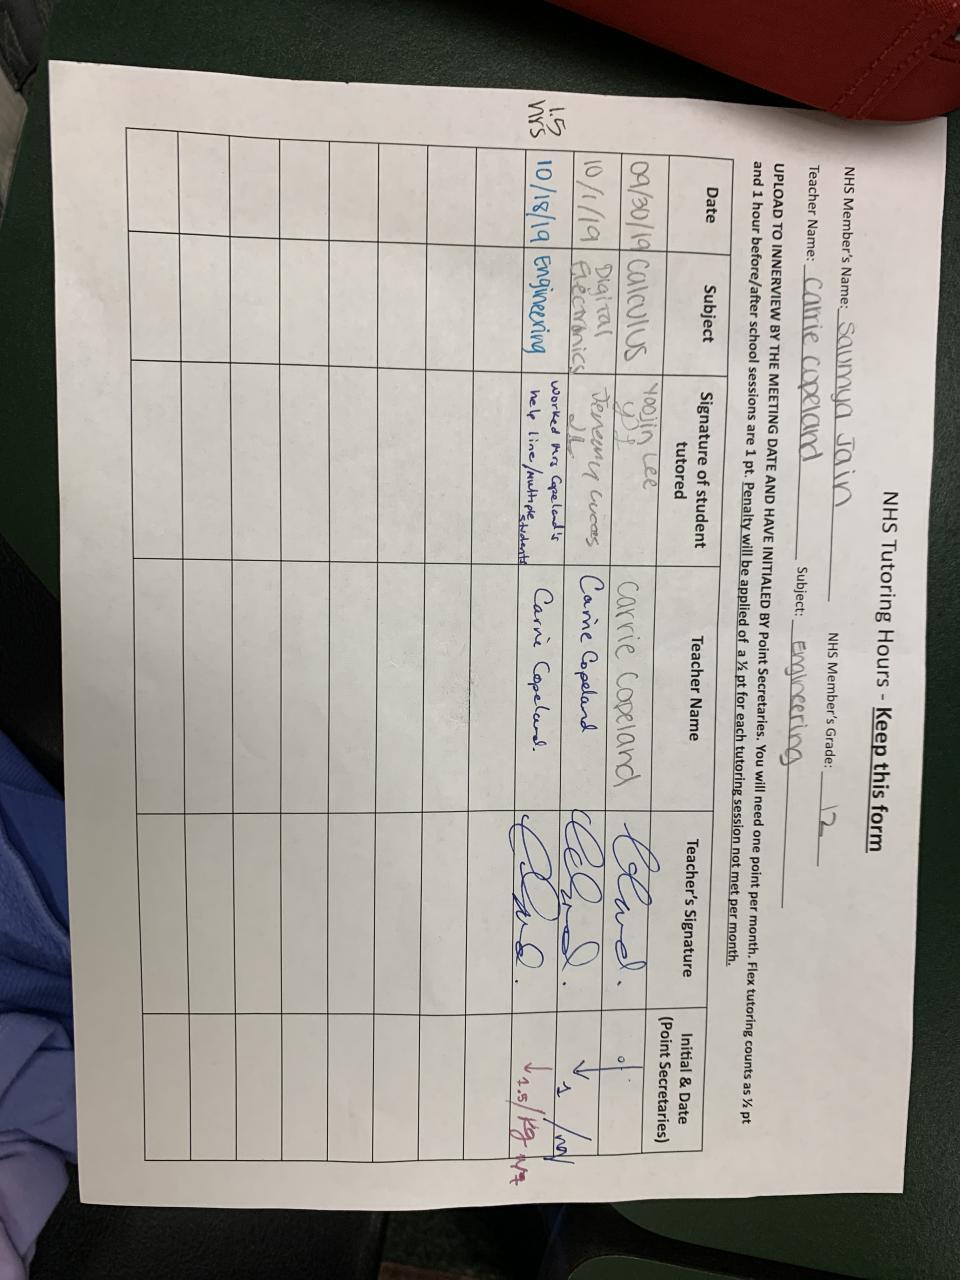 NHS Tutoring Hours - Keep this form
NHS Member's Name: Saumya Jain NHS Member's Grade: 12
Teacher Name: Carrie Copeland Subject: Engineering
UPLOAD TO INNERVIEW BY THE MEETING DATE AND HAVE INITIALED BY Point Secretaries. You will need one point per month. Flex tutoring counts as ½ pt
and 1 hour before/after school sessions are 1 pt. Penalty will be applied of a ½ pt for each tutoring session not met per month.
Date Subject Signature of student tutored Teacher Name Teacher's Signature Initial & Date (Point Secretaries)
09/30/19 Calculus Yoojin Lee Carrie Copeland
10/1/19 Digital Electronics Carrie Copeland 1
1.5 hrs 10/18/19 Engineering Worked Mrs Copeland's help line/multiple students Carrie Copeland. 1.5/Kg